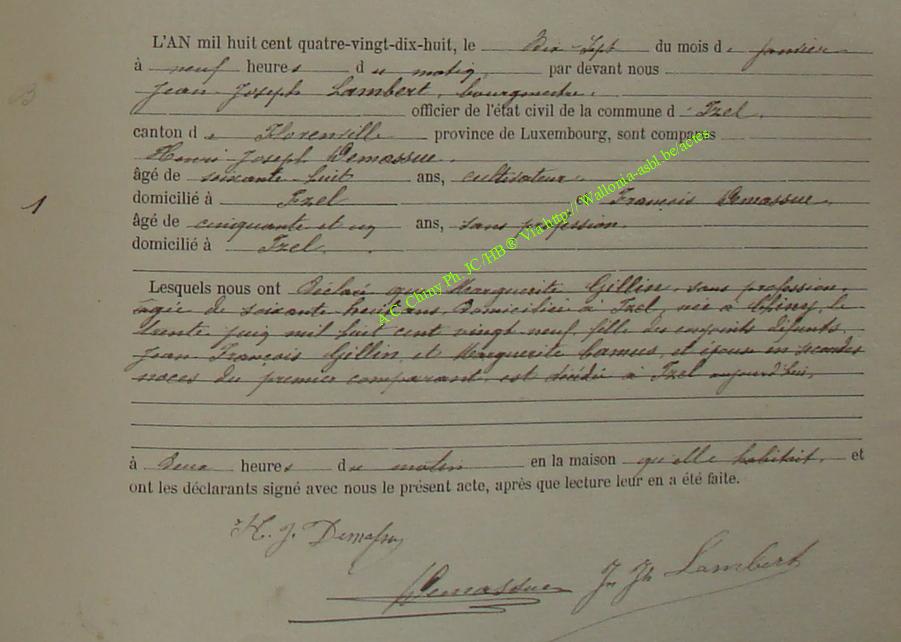 L'AN mil huit cent quatre-vingt-dix-huit, le Dix Sept du mois de janvier
à neuf heures du matin par devant nous
Jean Joseph Lambert, bourgmestre,
officier de l'état civil de la commune d' Izel,
canton de Florenville province de Luxembourg, sont comparus
Henri Joseph Demassue,
âgé de soixante huit ans, cultivateur
domicilié à Izel et François Demassue
âgé de cinquante et un ans, sans profession
domicilié à Izel
Lesquels nous ont Déclaré que Marguerite Gillin, sans profession,
agée de soixante huit ans, Domiciliée à Izel, née à Chiny, le
trente juin mil huit cent vingt neuf, fille des conjoints défunts
Jean François Gillin et Marguerite Camus, et épouse en secondes
noces du premier comparant, est décédée à Izel aujourd'hui,
à Deux heures du matin en la maison qu'elle habitait, et
ont les déclarants signé avec nous le présent acte, après que lecture leur en a été faite.
H. J. Demassue
Demassue
Jn Jh Lambert
1
A.C. Chiny Ph. JC/HB® Via http://Wallonia-asbl.be/actes